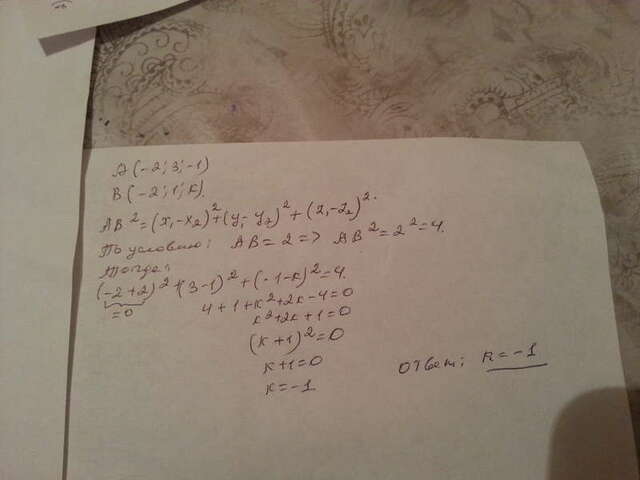 A (-2; 3; -1)
B (-2; 1; k).
AB² = (x₁-x₂)² + (y₁-y₂)² + (z₁-z₂)².
По условию: AB = 2 => AB² = 2² = 4.
Тогда:
(-2+2)² + (3-1)² + (-1-k)² = 4.
=0
4+1+k²+2k-4=0
k²+2k+1=0
(k+1)²=0
k+1=0
k=-1
ответ: k=-1